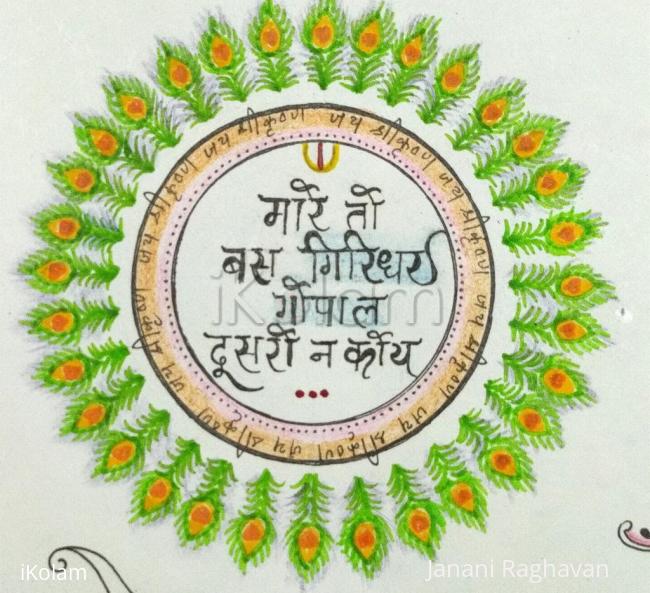 जय श्री कृष्ण जय श्री कृष्ण जय श्री कृष्ण जय श्री कृष्ण जय श्री कृष्ण जय श्री कृष्ण जय श्री कृष्ण जय श्री कृष्ण
मारे तो
बस गिरिधर
गोपाल
दूसरों न कोय
iKolam
iKolam
Janani Raghavan